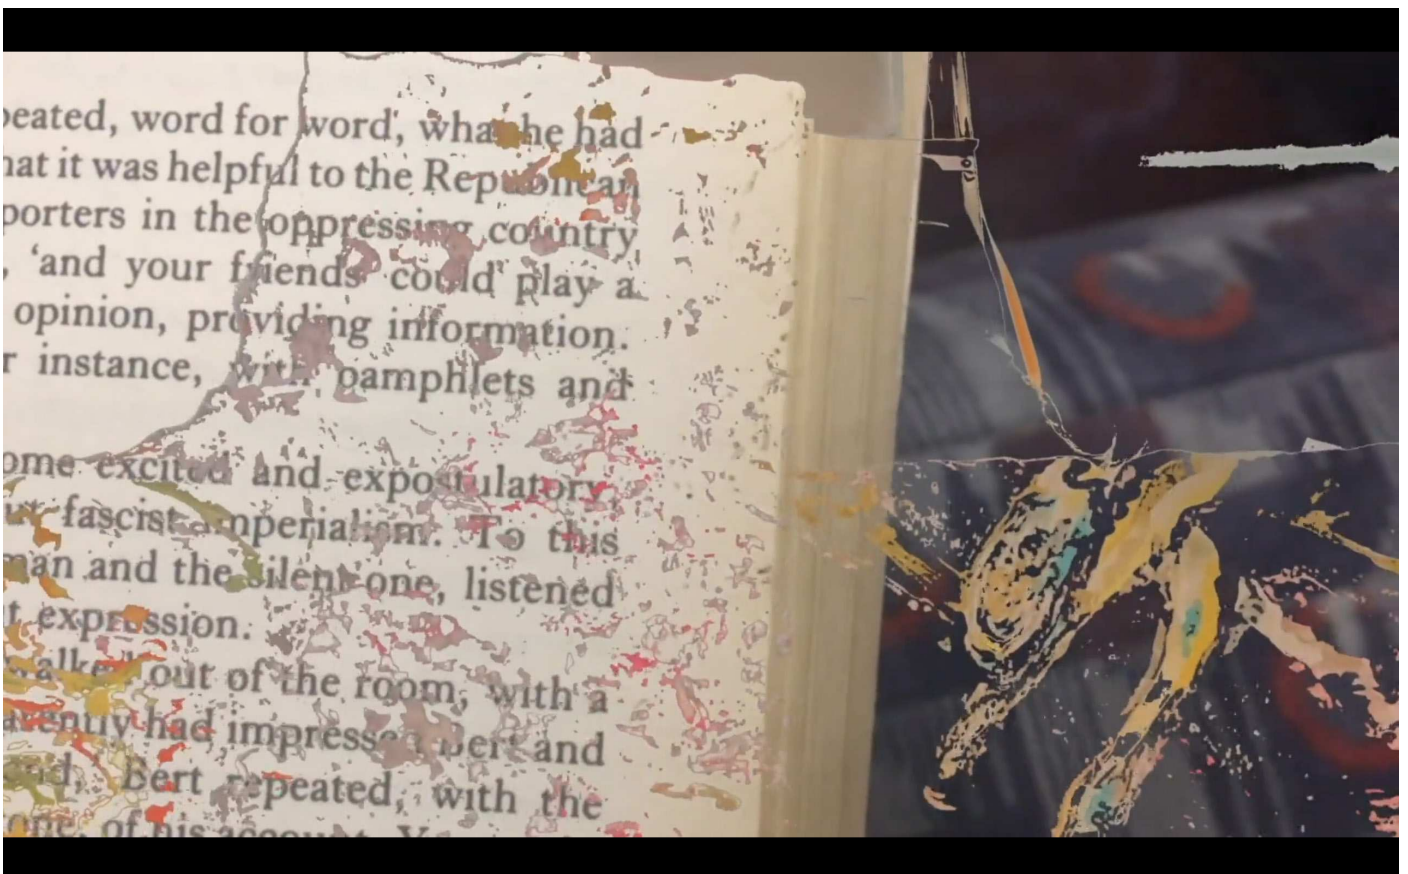 peated, word for word, what he had
hat it was helpful to the Republican
porters in the oppressing country
, 'and your friends could play a
opinion, providing information.
r instance, with pamphlets and
ome excited and expostulatory
fascist imperialism. To this
man and the silent one, listened
t expression.
walked out of the room, with a
arently had impressed Bert and
Bert repeated, with the
of his account.